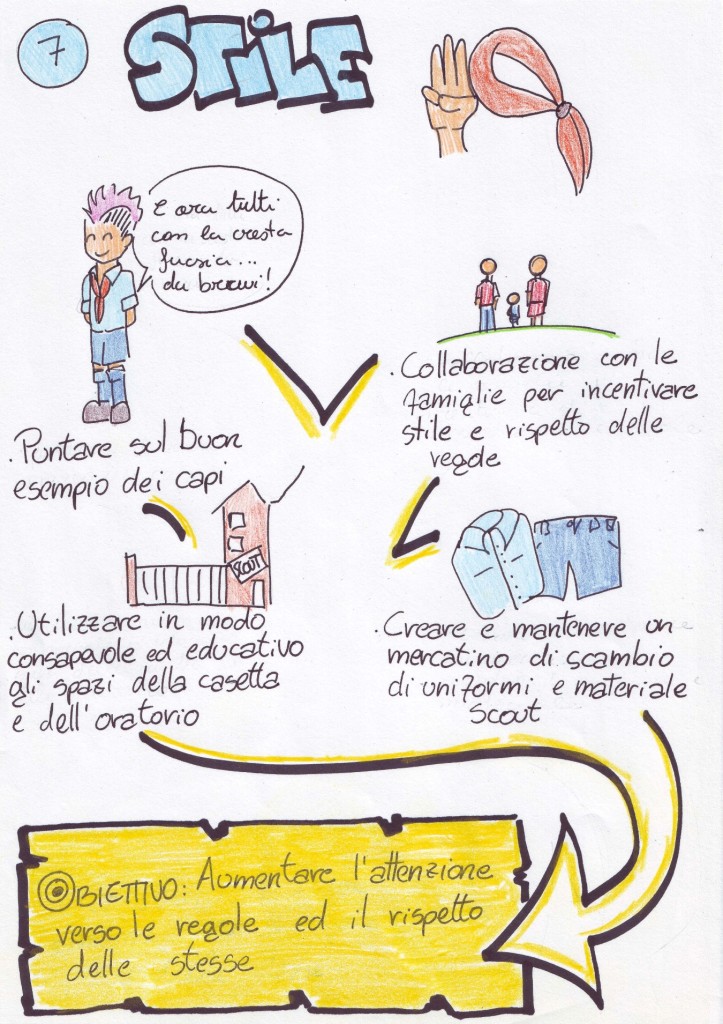 7
STILE
E ora tutti
con la cresta
fucsia...
da bravi!
. Collaborazione con le
famiglie per incentivare
stile e rispetto delle
regole
. Puntare sul buon
esempio dei capi
SCOUT
. Utilizzare in modo
consapevole ed educativo
gli spazi della casetta
e dell'oratorio
. Creare e mantenere un
mercatino di scambio
di uniformi e materiale
Scout
OBIETTIVO: Aumentare l'attenzione
verso le regole ed il rispetto
delle stesse